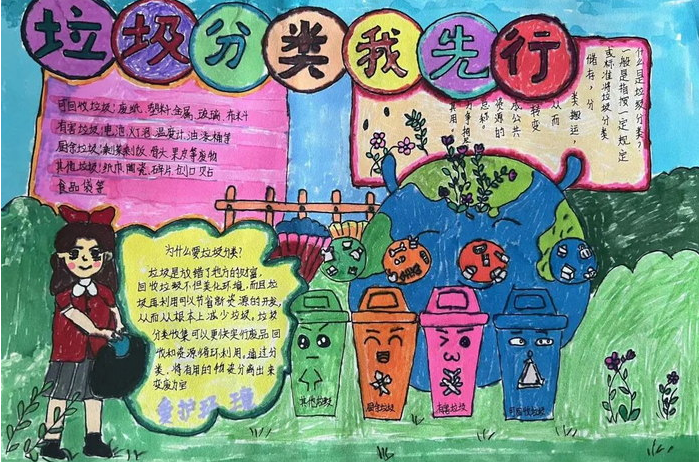 垃圾分类我先行
可回收垃圾:废纸,塑料,金属,玻璃,布料
有害垃圾:电池,灯泡,温度计,油漆桶等
厨余垃圾:剩菜剩饭,骨头,果皮等废物
其他垃圾:纸巾,陶瓷,碎片,创口贴
食品袋等
什么是垃圾分类?
一般是指按一定规定
或标准将垃圾分类
储存,分
类搬运,
从而
转变
成公共
资源的
总称
为什么要垃圾分类?
垃圾是放错地方的财富,
回收垃圾不但美化环境,而且垃
圾再利用可以节省新资源的开发,
从而从根本上减少垃圾,垃圾
分类收集可以更快实行废品回
收和资源循环利用,通过分
类,将有用的物资分离出来
变废为宝
爱护环境
其他垃圾
厨余垃圾
有害垃圾
可回收垃圾